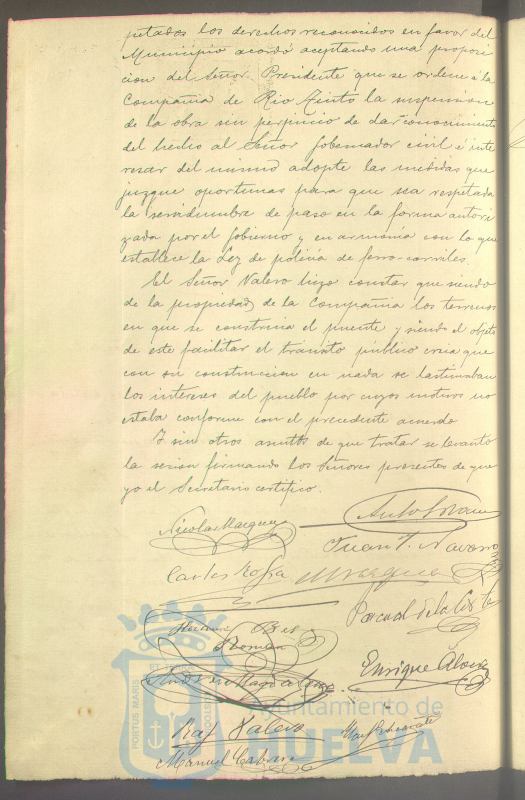 petados los derechos reconocidos en favor del
Municipio acordó aceptando una proposi
cion del Señor Presidente que se ordene á la
Compañia de Rio Tinto la suspension
de la obra sin perjuicio de dar conocimiento
del hecho al Señor Gobernador civil é inte
resar del mismo adopte las medidas que
juzgue oportunas para que sea respetada
la servidumbre de paso en la forma autori
zada por el Gobierno y en armonia con lo que
establece la Ley de policia de ferro-carriles.
El Señor Valero hizo constar que siendo
de la propiedad de la Compañia los terrenos
en que se construia el puente y siendo el objeto
de este facilitar el tránsito público creia que
con su construccion en nada se lastimaban
los intereses del pueblo por cuyos motivos no
estaba conforme con el precedente acuerdo
Y sin otros asuntos de que tratar se levantó
la sesion firmando los Señores presentes de que
yo el Secretario certifico.
Nicolas Marquez
Juan F. Navarro
Carlos
Pascual de la
Roman
Enrique
Raf Valero
Manuel
PORTUS MARIS
Ayuntamiento de
HUELVA